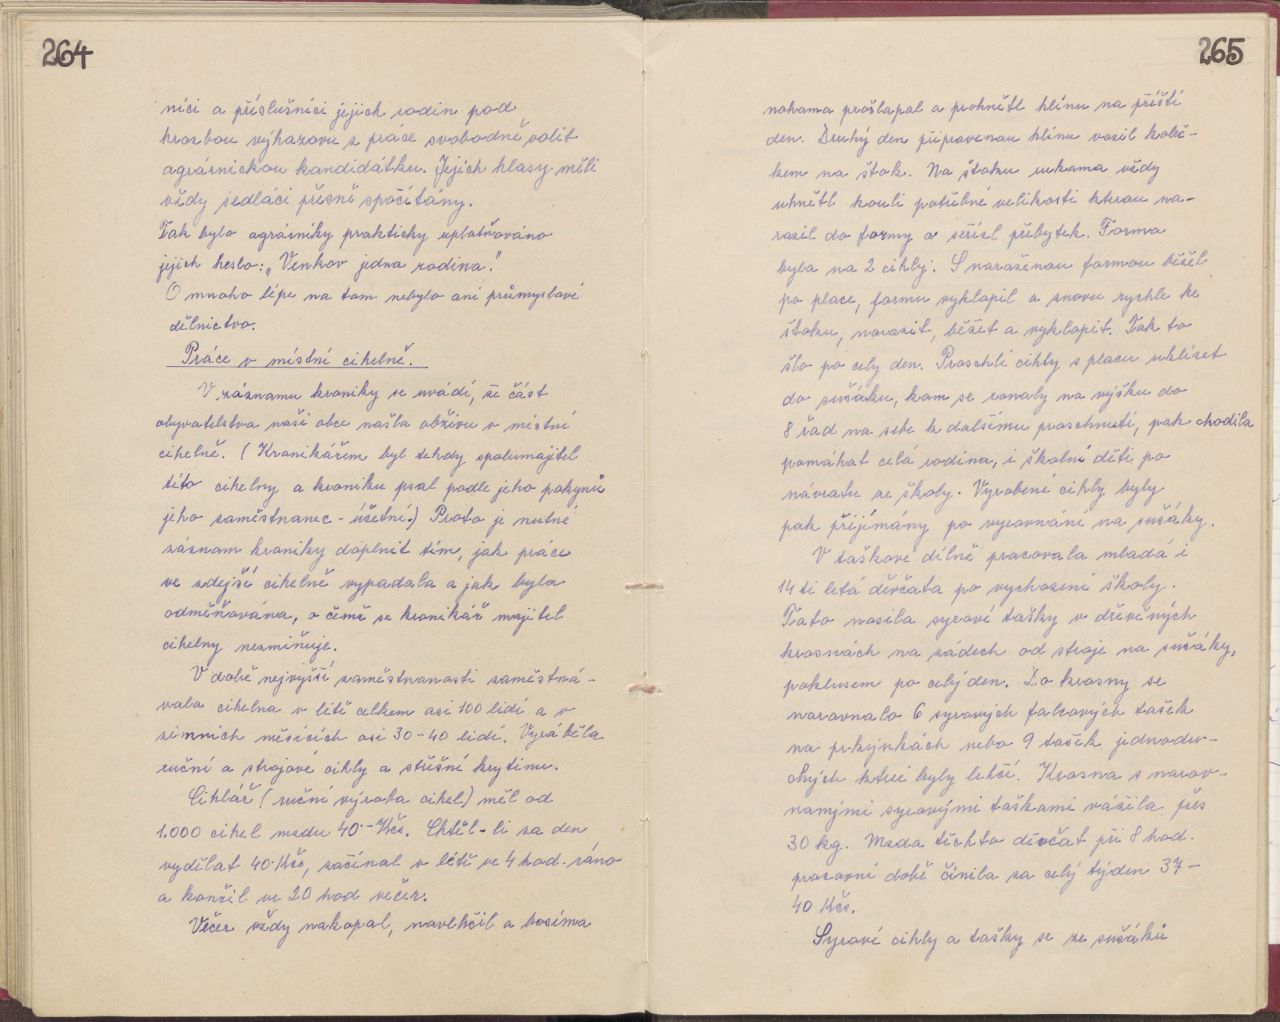 264
níci a příslušníci jejich rodin pod
hrozbou výhazovu z práce svobodně volit
agrárnickou kandidátku. Jejich hlasy měli
vždy sedláci přesně spočítány.
Tak bylo agrárníky prakticky uplatňováno
jejich heslo: „Venkov jedna rodina."
O mnoho lépe na tom nebylo ani průmyslové
dělnictvo.
Práce v místní cihelně.
V záznamu kroniky se uvádí, že část
obyvatelstva naší obce našla obživu v místní
cihelně. (Kronikářem byl tehdy spolumajitel
této cihelny a kroniku psal podle jeho pokynů
jeho zaměstnanec - účetní.) Proto je nutné
záznam kroniky doplnit tím, jak práce
ve zdejší cihelně vypadala a jak byla
odměňována, o čemž se kronikář majitel
cihelny nezmiňuje.
V době nejvyšší zaměstnanosti zaměstná-
vala cihelna v létě celkem asi 100 lidí a v
zimních měsících asi 30-40 lidí. Vyráběla
ruční a strojové cihly a střešní krytinu.
Cihlář (ruční výroba cihel) měl od
1.000 cihel mzdu 40.- Kčs. Chtěl-li za den
vydělat 40 Kčs, začínal v létě ve 4 hod. ráno
a končil ve 20 hod večer.
Večer vždy nakopal, navlhčil a bosíma
265
nohama prošlapal a prohnětl hlínu na příští
den. Druhý den připravenou hlínu vozil koleč-
kem na štok. Na štoku rukama vždy
uhnětl kouli potřebné velikosti kterou na-
razil do formy a seřízl přibytek. Forma
byla na 2 cihly. S naraženou formou běžel
po place, formu vyklopil a znovu rychle ke
štoku, narazit, běžet a vyklopit. Tak to
šlo po celý den. Proschlé cihly s placu uklízet
do sušáku, kam se rovnaly na výšku do
8 řad na sebe k dalšímu proschnutí, pak chodila
pomáhat celá rodina, i školní děti po
návratu ze školy. Vyrobené cihly byly
pak přijímány po vyrovnání na sušáky.
V taškové dílně pracovala mladá i
14 ti letá děvčata po vychození školy.
Tato nosila syrové tašky v dřevěných
krosnách na zádech od stroje na sušáky,
poklusem po celý den. Do krosny se
narovnalo 6 syrových falcových tašek
na prkýnkách nebo 9 tašek jednodu-
chých které byly lehčí. Krosna s narov-
nanými syrovými taškami vážila přes
30 kg. Mzda těchto děvčat při 8 hod.
pracovní době činila za celý týden 37-
40 Kčs.
Syrové cihly a tašky se ze sušáků